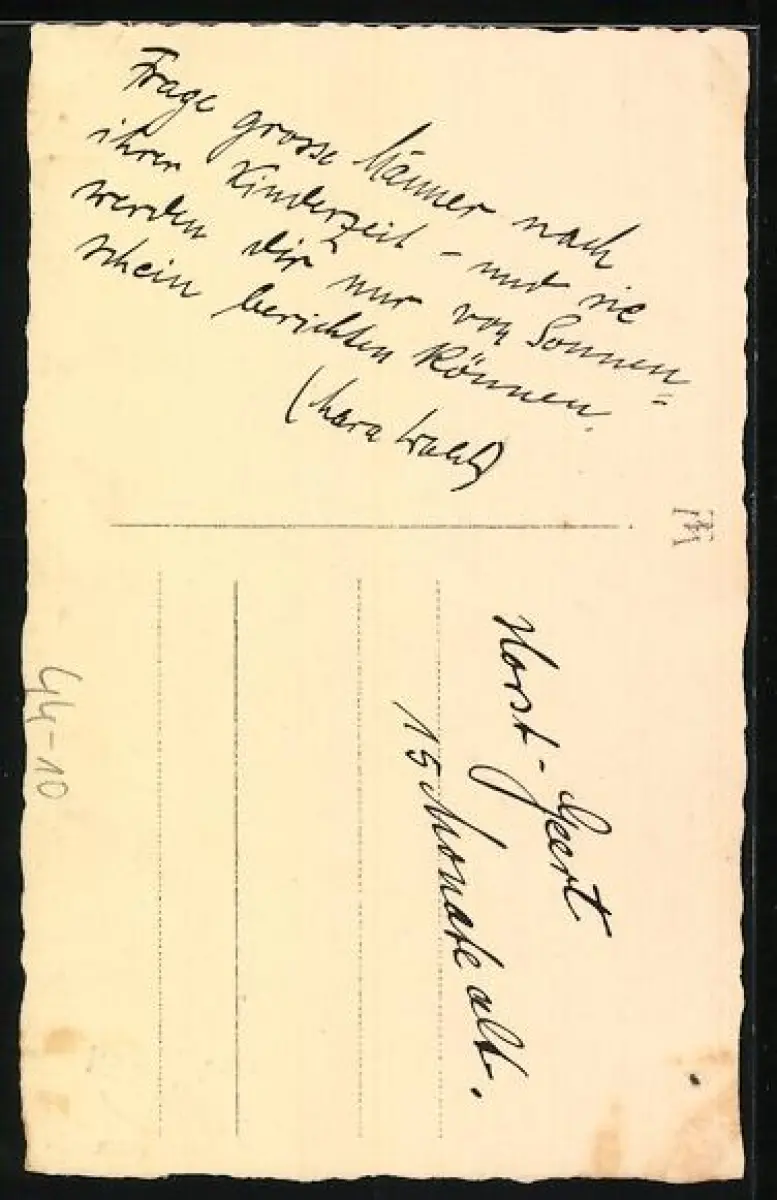 Frage grosse Männer nach
ihrer Kinderzeit – und sie
werden dir nur von Sonnen=
schein berichten können.
Horst-Geert
15 Monate alt.
44-10